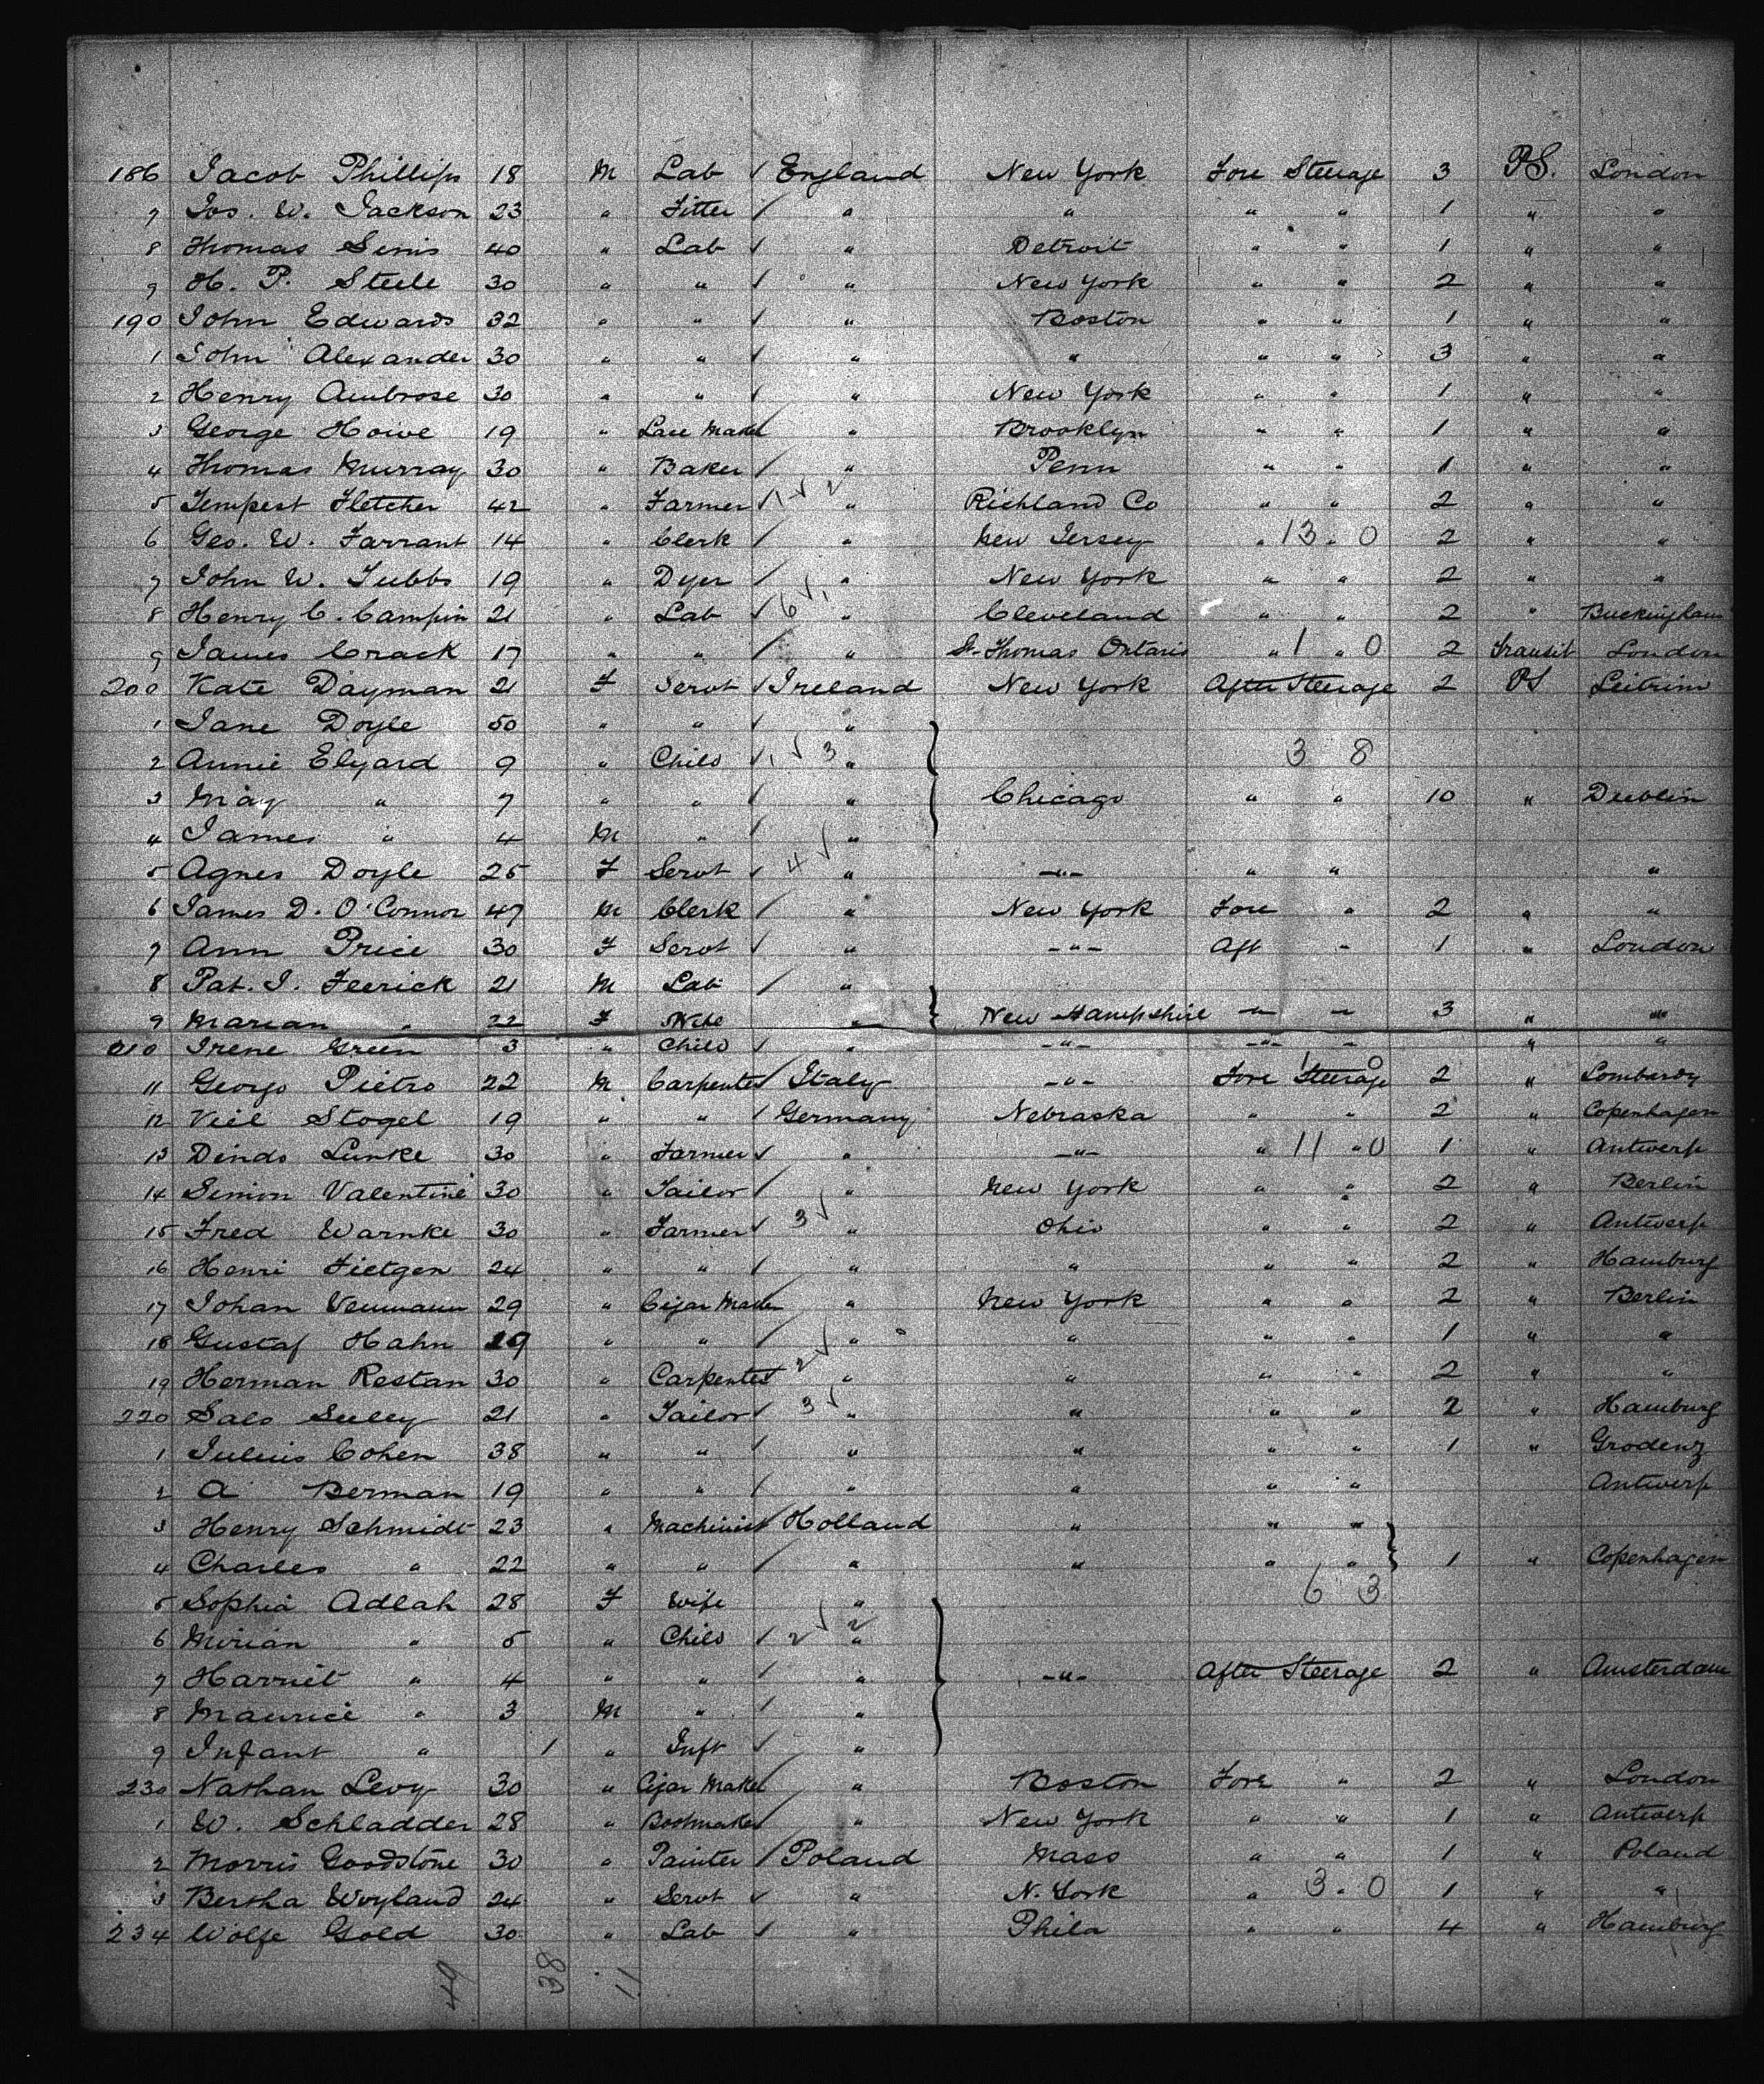 186 Jacob Phillips 18 M Lab ✓ England New York Fore Steerage 3 P.S. London
7 Jos. W. Jackson 23 " Fitter / " " " " 1 " "
8 Thomas Simis 40 " Lab ✓ " Detroit " " 1 " "
9 H. P. Steele 30 " " / " New York " " 2 " "
190 John Edwards 32 " " / " Boston " " 1 " "
1 John Alexander 30 " " / " " " " 3 " "
2 Henry Ambrose 30 " " / " New York " " 1 " "
3 George Howe 19 " Lace Maker / " Brooklyn " " 1 " "
4 Thomas Murray 30 " Baker / " Penn " " 1 " "
5 Tempest Fletcher 42 " Farmer ✓ 1 ✓ 2 " Richland Co " " 2 " "
6 Geo. W. Farrant 14 " Clerk / " New Jersey " 13 " 0 2 " "
7 John W. Tubbs 19 " Dyer / " New York " " 2 " "
8 Henry C. Campin 21 " Lab ✓ 6 ✓ 1 " Cleveland " " 2 " Buckingham
9 James Crack 17 " " / " St. Thomas Ontario " 1 " 0 2 Transit London
200 Kate Dayman 21 F Servt ✓ Ireland New York After Steerage 2 PS Leitrim
1 Jane Doyle 50 " " ✓ "
2 Annie Elyard 9 " Child ✓ 1 ✓ 3 " 3 8
3 May " 7 " " / " Chicago " " 10 " Dublin
4 James " 4 M " / "
5 Agnes Doyle 25 F Servt ✓ 4 ✓ " -"- " " "
6 James D. O'Connor 47 M Clerk / " New York Fore " 2 " "
7 Ann Price 30 F Servt ✓ " -"- Aft " 1 " London
8 Pat. J. Feerick 21 M Lab / "
9 Marian " 22 F Wife " New Hampshire " " 3 " "
210 Irene Green 3 " Child ✓ " -"- -"- " " "
11 Georgo Pietro 22 M Carpenter / Italy -"- Fore Steerage 1 0 2 " Lombardy
12 Viel Stogel 19 " " / Germany Nebraska " " 2 " Copenhagen
13 Dindo Lunke 30 " Farmer ✓ " -"- " 11 " 0 1 " Antwerp
14 Simon Valentine 30 " Tailor / " New York " " 2 " Berlin
15 Fred Warnke 30 " Farmer ✓ 3 ✓ " Ohio " " 2 " Antwerp
16 Henri Fietgen 24 " " / " " " " 2 " Hamburg
17 Johan Neumann 29 " Cigar Maker / " New York " " 2 " Berlin
18 Gustaf Hahn 29 " " / " " " " 1 " "
19 Herman Restan 30 " Carpenter 2 ✓ " " " " 2 " "
220 Salo Seeley 21 " Tailor ✓ 3 ✓ " " " " 2 " Hamburg
1 Julius Cohen 38 " " / " " " " 1 " Grodenz
2 A Berman 19 " " / " " " " Antwerp
3 Henry Schmidt 23 " Machinist / Holland " " "
4 Charles " 22 " " / " " " " 1 " Copenhagen
5 Sophia Adlah 28 F Wife " 6 3
6 Mirian " 5 " Child / 2 ✓ 2 "
7 Harriet " 4 " " / " -"- After Steerage 2 " Amsterdam
8 Maurice " 3 M " / "
9 Infant " 1 " Inft ✓ "
230 Nathan Levy 30 " Cigar Maker / " Boston Fore " 2 " London
1 W. Schladder 28 " Bootmaker / " New York " " 1 " Antwerp
2 Morris Goodstone 30 " Painter / Poland Mass " " 1 " Poland
3 Bertha Woyland 24 " Servt ✓ " N. York " 3 " 0 1 " "
234 Wolfe Gold 30 " Lab ✓ " Phila " " 4 " Hamburg
49 38 11